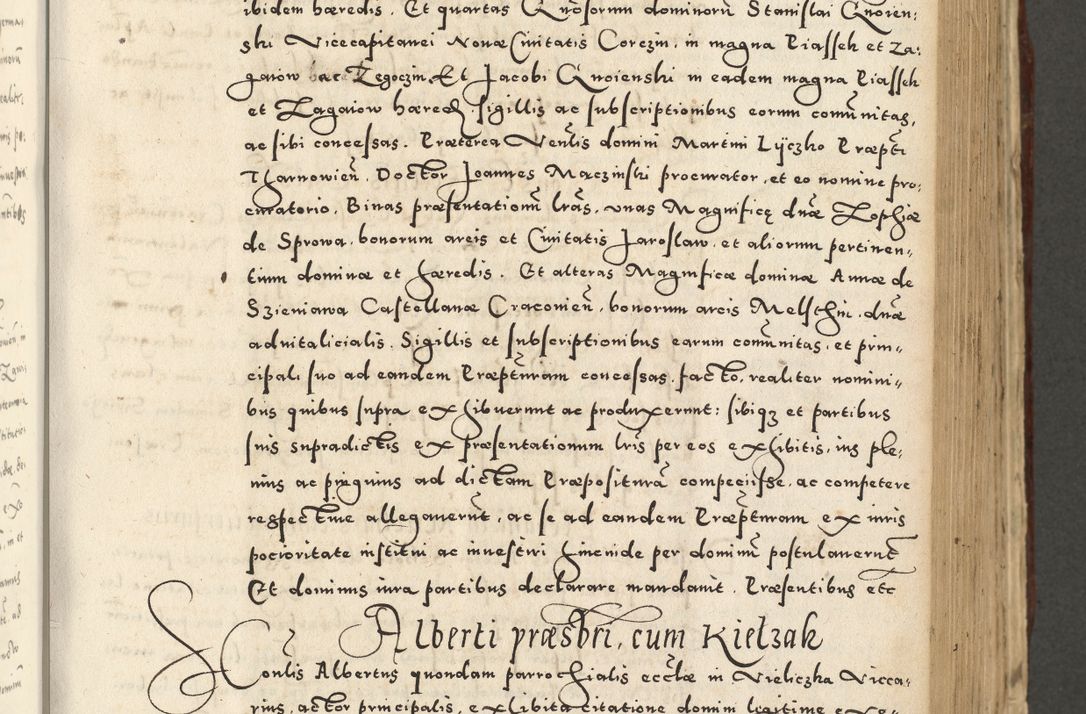 ibidem hæredis. Et quartas Gnosorum dominorū Stanislai Gnoien:
ski Vicecapitanei Nouæ Ciuitatis Corczin, in magna Piassek et Za:
gaiow hac Zegoczin, Et Jacobi Gnoienski in eadem magna Piassek
et Zagaiow hæred, sigillis ac subscriptionibus eorum comūnitas,
ac sibi concessas. Præterea Venlis domini Martini Lyczko Præpti
Tharnowien̄. Doctor Joannes Maczinski procurator, et eo nomine pro:
curatorio, Binas præsentationū lras, vnas Magnificę dnæ Zophiæ
de Sprowa, bonorum arcis et Ciuitatis Jaroslaw, et aliorum pertinen„
tium dominæ et hæredis. Et alteras Magnificæ dominæ Annæ de
Szieniawa Castellanæ Craconien̄, bonorum arcis Melsthin, dnæ
aduitalicialis. Sigillis et subscriptionibus earum comūnitas, et prin„
cipali suo ad eandem Præpturam concessas, facto, realiter nomini„
bus quibus supra exhibuerunt ac produxerunt: sibiqz et partibus
suis supradictis ex præsentationum lris per eos exhibitis, ius ple:
nius ac pinguius ad dictam Præpositurā compeciisse, ac competere
respectiue allegauerūt, ac se ad eandem Præpturam ex iuris
pocioritate institui ac inuestiri hincinde per dominū postulauerūt
Et dominus iura partibus declarare mandauit. Præsentibus etc
Alberti præsbri, cum Kielzak
Honlis Albertus quondam parrochialis ecclæ in Vieliczka Vicca„
rius, actor principalis, exhibita citatione domini legitime